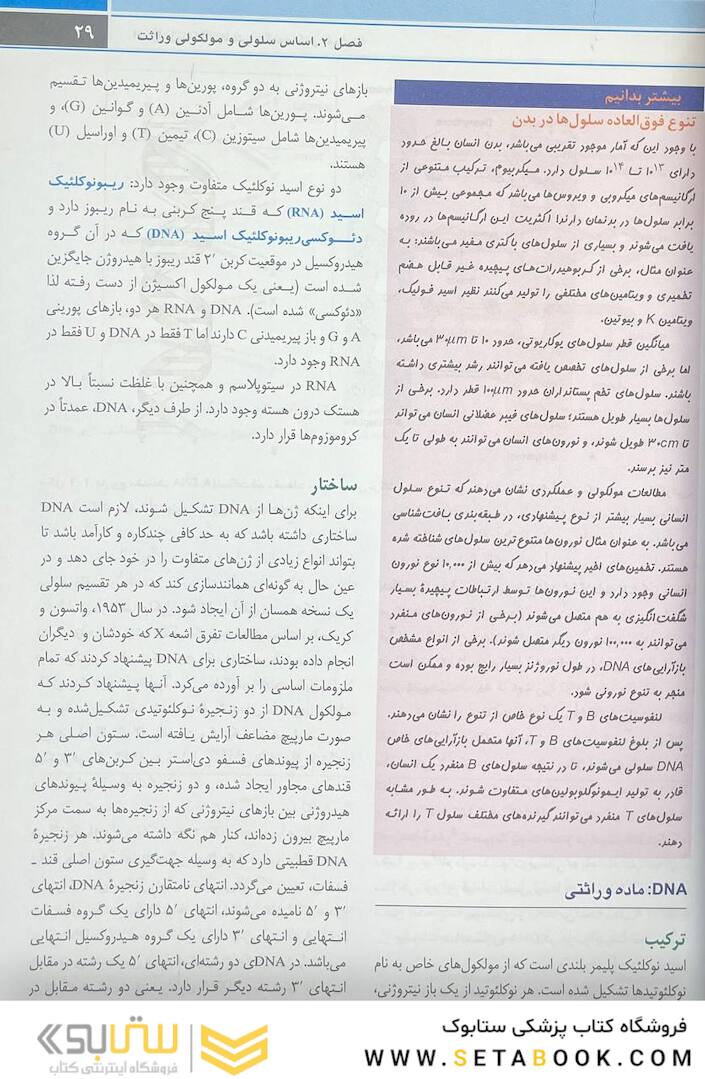 فصل ۲. اساس سلولی و مولکولی وراثت
۲۹
بیشتر بدانیم
تنوع فوق‌العاده سلول‌ها در بدن
با وجود این که آمار موجود تقریبی می‌باشد، بدن انسان بالغ حدود
دارای ۱۰¹³ تا ۱۰¹⁴ سلول دارد. میکربیوم، ترکیب متنوعی از
ارگانیسم‌های میکروبی و ویروس‌ها می‌باشد که مجموعی بیش از ۱۰
برابر سلول‌ها در بدنمان دارند! اکثریت این ارگانیسم‌ها در روده
یافت می‌شوند و بسیاری از سلول‌های باکتری مفید می‌باشند: به
عنوان مثال، برخی از کربوهیدرات‌های پیچیده غیر قابل هضم
تخمیری و ویتامین‌های مختلفی را تولید می‌کنند نظیر اسید فولیک،
ویتامین K و بیوتین.
میانگین قطر سلول‌های یوکاریوتی، حدود ۱۰ تا ۳۰µm می‌باشد،
اما برخی از سلول‌های تخصص یافته می‌توانند رشد بیشتری داشته
باشند. سلول‌های تخم پستانداران حدود ۱۰۰µm قطر دارد. برخی از
سلول‌ها بسیار طویل هستند؛ سلول‌های فیبر عضلانی انسان می‌تواند
تا ۳۰cm طویل شوند، و نورون‌های انسان می‌توانند به طولی تا یک
متر نیز برسند.
مطالعات مولکولی و عملکردی نشان می‌دهند که تنوع سلول
انسانی بسیار بیشتر از نوع پیشنهادی، در طبقه‌بندی بافت‌شناسی
می‌باشد. به عنوان مثال نورون‌ها متنوع‌ترین سلول‌های شناخته شده
هستند. تخمین‌های اخیر پیشنهاد می‌دهد که بیش از ۱۰,۰۰۰ نوع نورون
انسانی وجود دارد و این نورون‌ها توسط ارتباطات پیچیدهٔ بسیار
شگفت‌انگیزی به هم متصل می‌شوند (برخی از نورون‌های منفرد
می توانند به ۱۰۰,۰۰۰ نورون دیگر متصل شوند). برخی از انواع مشخص
بازآرایی‌های DNA، در طول نوروژنز بسیار رایج بوده و ممکن است
منجر به تنوع نورونی شود.
لنفوسیت‌های B و T یک نوع خاص از تنوع را نشان می‌دهند.
پس از بلوغ لنفوسیت‌های B و T، آنها متحمل بازآرایی‌های خاص
DNA سلولی می‌شوند، تا در نتیجه سلول‌های B منفرد یک انسان،
قادر به تولید ایمونوگلوبولین‌های متفاوت شوند. به طور مشابه
سلول‌های T منفرد می‌توانند گیرنده‌های مختلف سلول T را ارائه
دهند.
DNA: ماده وراثتی
ترکیب
اسید نوکلئیک پلیمر بلندی است که از مولکول‌های خاص به نام
نوکلئوتیدها تشکیل شده است. هر نوکلئوتید از یک باز نیتروژنی،
بازهای نیتروژنی به دو گروه، پورین‌ها و پیریمیدین‌ها تقسیم
می‌شوند. پورین‌ها شامل آدنین (A) و گوانین (G)، و
پیریمیدین‌ها شامل سیتوزین (C)، تیمین (T) و اوراسیل (U)
هستند.
دو نوع اسید نوکلئیک متفاوت وجود دارد: ریبونوکلئیک
اسید (RNA) که قند پنج کربنی به نام ریبوز دارد و
دئوکسی‌ریبونوکلئیک اسید (DNA) که در آن گروه
هیدروکسیل در موقعیت کربن ′۲ قند ریبوز با هیدروژن جایگزین
شده است (یعنی یک مولکول اکسیژن از دست رفته لذا
«دئوکسی» شده است). DNA و RNA هر دو، بازهای پورینی
A و G و باز پیریمیدنی C دارند اما T فقط در DNA و U فقط در
RNA وجود دارد.
RNA در سیتوپلاسم و همچنین با غلظت نسبتاً بالا در
هستک درون هسته وجود دارد. از طرف دیگر، DNA، عمدتاً در
کروموزوم‌ها قرار دارد.
ساختار
برای اینکه ژن‌ها از DNA تشکیل شوند، لازم است DNA
ساختاری داشته باشد که به حد کافی چندکاره و کارآمد باشد تا
بتواند انواع زیادی از ژن‌های متفاوت را در خود جای دهد و در
عین حال به گونه‌ای همانندسازی کند که در هر تقسیم سلولی
یک نسخه همسان از آن ایجاد شود. در سال ۱۹۵۳، واتسون و
کریک، بر اساس مطالعات تفرق اشعه X که خودشان و دیگران
انجام داده بودند، ساختاری برای DNA پیشنهاد کردند که تمام
ملزومات اساسی را بر آورده می‌کرد. آنها پیشنهاد کردند که
مولکول DNA از دو زنجیرهٔ نوکلئوتیدی تشکیل‌شده و به
صورت مارپیچ مضاعف آرایش یافته است. ستون اصلی هر
زنجیره از پیوندهای فسفو دی‌استر بین کربن‌های ′۳ و ′۵
قندهای مجاور ایجاد شده، و دو زنجیره به وسیلهٔ پیوندهای
هیدروژنی بین بازهای نیتروژنی که از زنجیره‌ها به سمت مرکز
مارپیچ بیرون زده‌اند، کنار هم نگه داشته می‌شوند. هر زنجیرهٔ
DNA قطبیتی دارد که به وسیله جهت‌گیری ستون اصلی قند ـ
فسفات، تعیین می‌گردد. انتهای نامتقارن زنجیرهٔ DNA، انتهای
′۳ و ′۵ نامیده می‌شوند، انتهای ′۵ دارای یک گروه فسفات
انتهایی و انتهای ′۳ دارای یک گروه هیدروکسیل انتهایی
می‌باشد. در DNAی دو رشته‌ای، انتهای ′۵ یک رشته در مقابل
انتهای ′۳ رشته دیگر قرار دارد. یعنی دو رشته مقابل در
فروشگاه کتاب پزشکی ستابوک
WWW.SETABOOK.COM
ستابوک
فروشگاه اینترنتی کتاب